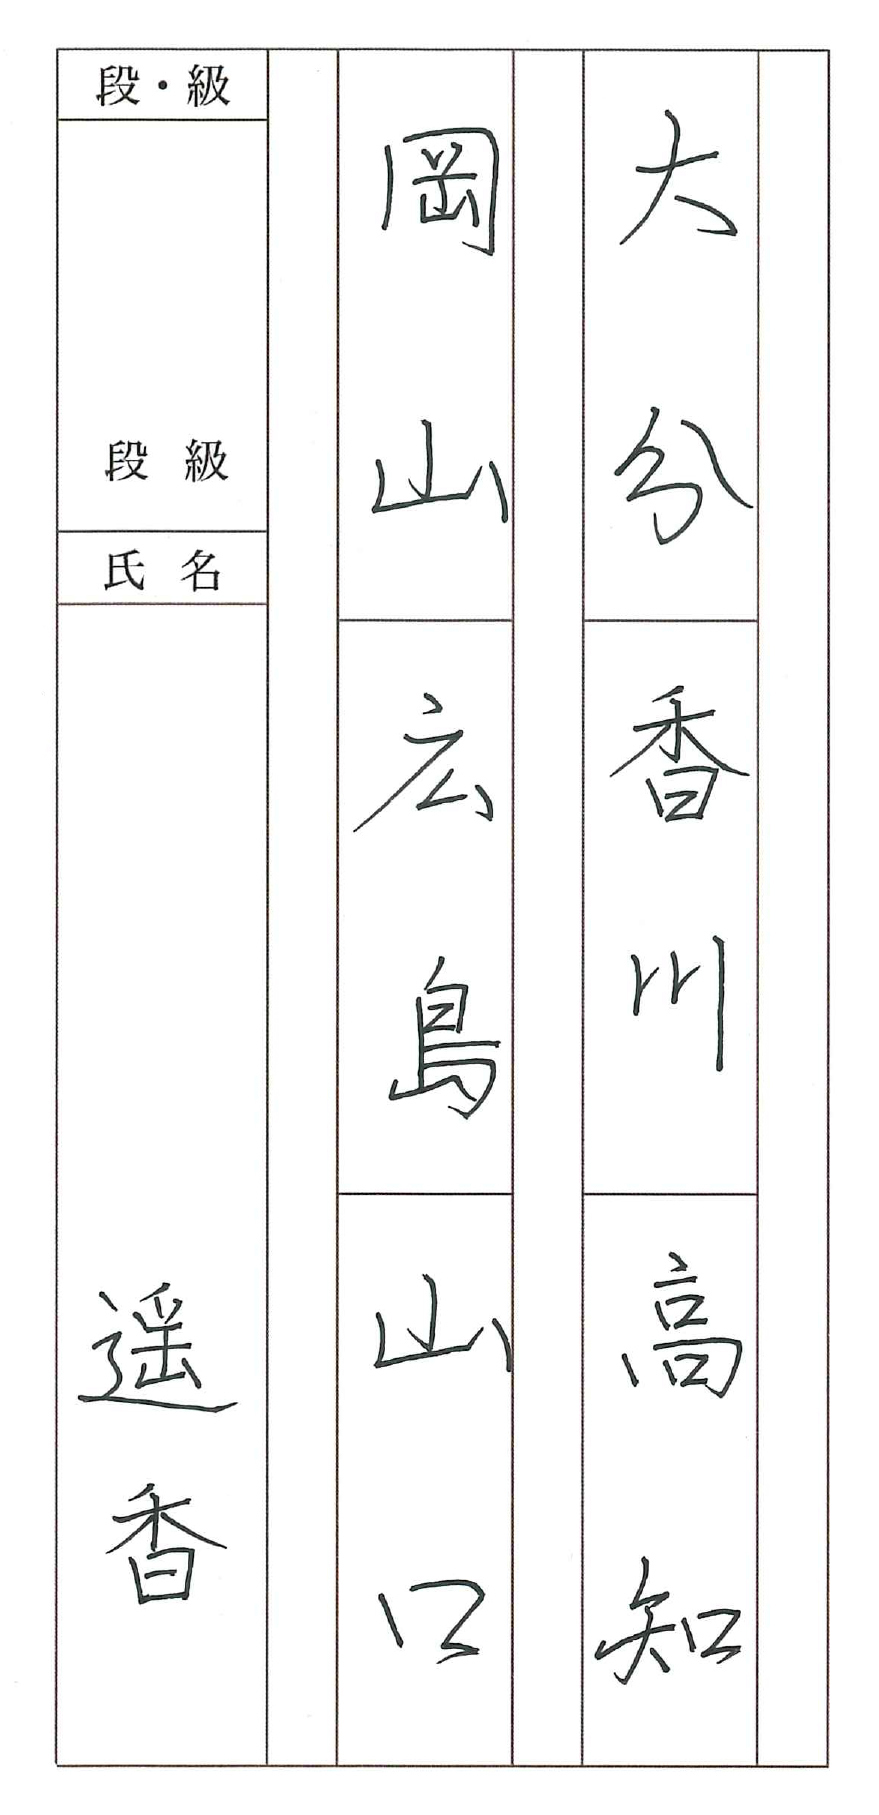 大分 香川 高知
岡山 広島 山口
段・級
段 級
氏名
遥香